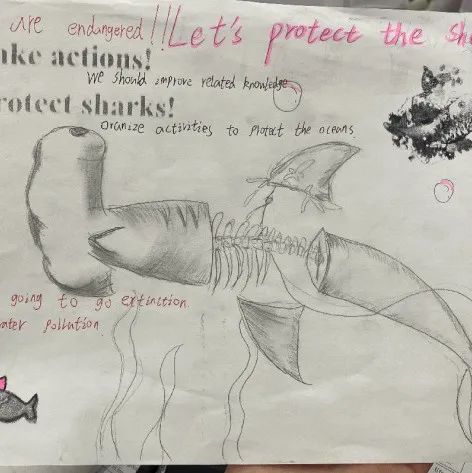 are endangered!!! Let's protect the sh
ake actions!
We should improve related knowledge
rotect sharks!
Oranize activities to protect the oceans
going to go extinction.
ater pollution.